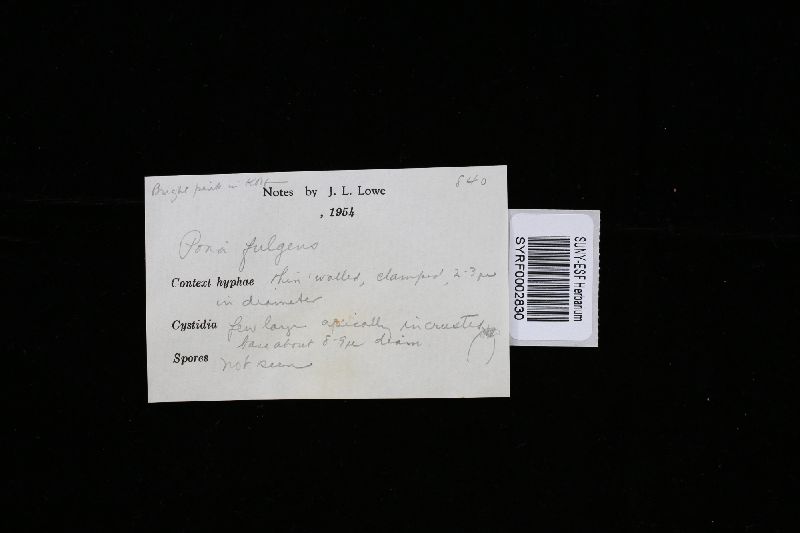 Bright pink in KOH
840
Notes by J. L. Lowe
, 1954
Poria fulgens
Context hyphae thin walled, clamped, 2-3 µ
in diameter
Cystidia few large apically incrusted,
base about 8-9 µ diam.
Spores not seen
SUNY-ESF Herbarium
SYRF0002830